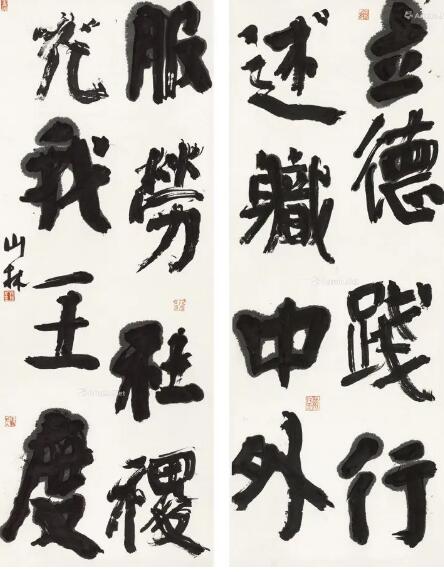 立德践行
述職中外
服勞社稷
光我王度
山林